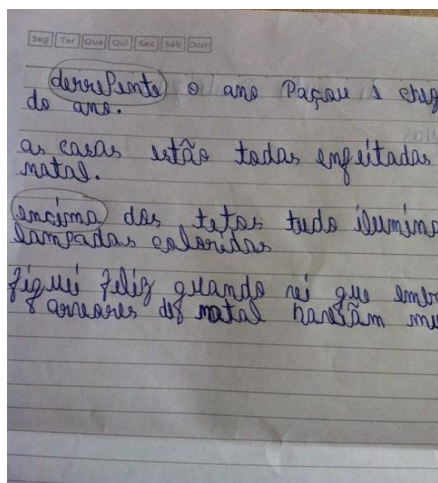 Seg Ter Qua Qui Sex Sáb Dom
derrepente o ano Paçou e cheg
do ano.
as casas estão todas enfeitadas
natal.
encima dos tetos tudo ilumina
lampadas coloridas
fiquei feliz quando vi que emb
arvores de natal haviam mu